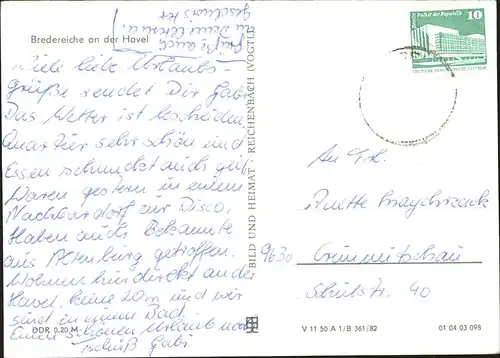 Bredereiche an der Havel
Grüße auch
an Deine Eltern u.
Geschwister
Viele liebe Urlaubs-
grüße sendet Dir Gabi.
Das Wetter ist bescheiden.
Quartier sehr schön und
Essen schmeckt auch gut.
Waren gestern in einem
Nachbardorf zur Disco.
Haben auch Bekannte
aus Altenburg getroffen.
Wohnen hier direkt an der
Havel, keine 20 m und wir
sind in einem Bad.
Einen schönen Urlaub noch
Tschüß Gabi
DDR 0,20 M
BILD UND HEIMAT REICHENBACH (VOGTL)
10
Palast der Republik
An Frl.
Anette
9630 Crimmitschau
Schulstr. 40
V 11 50 A 1/B 361/82
01 04 03 098